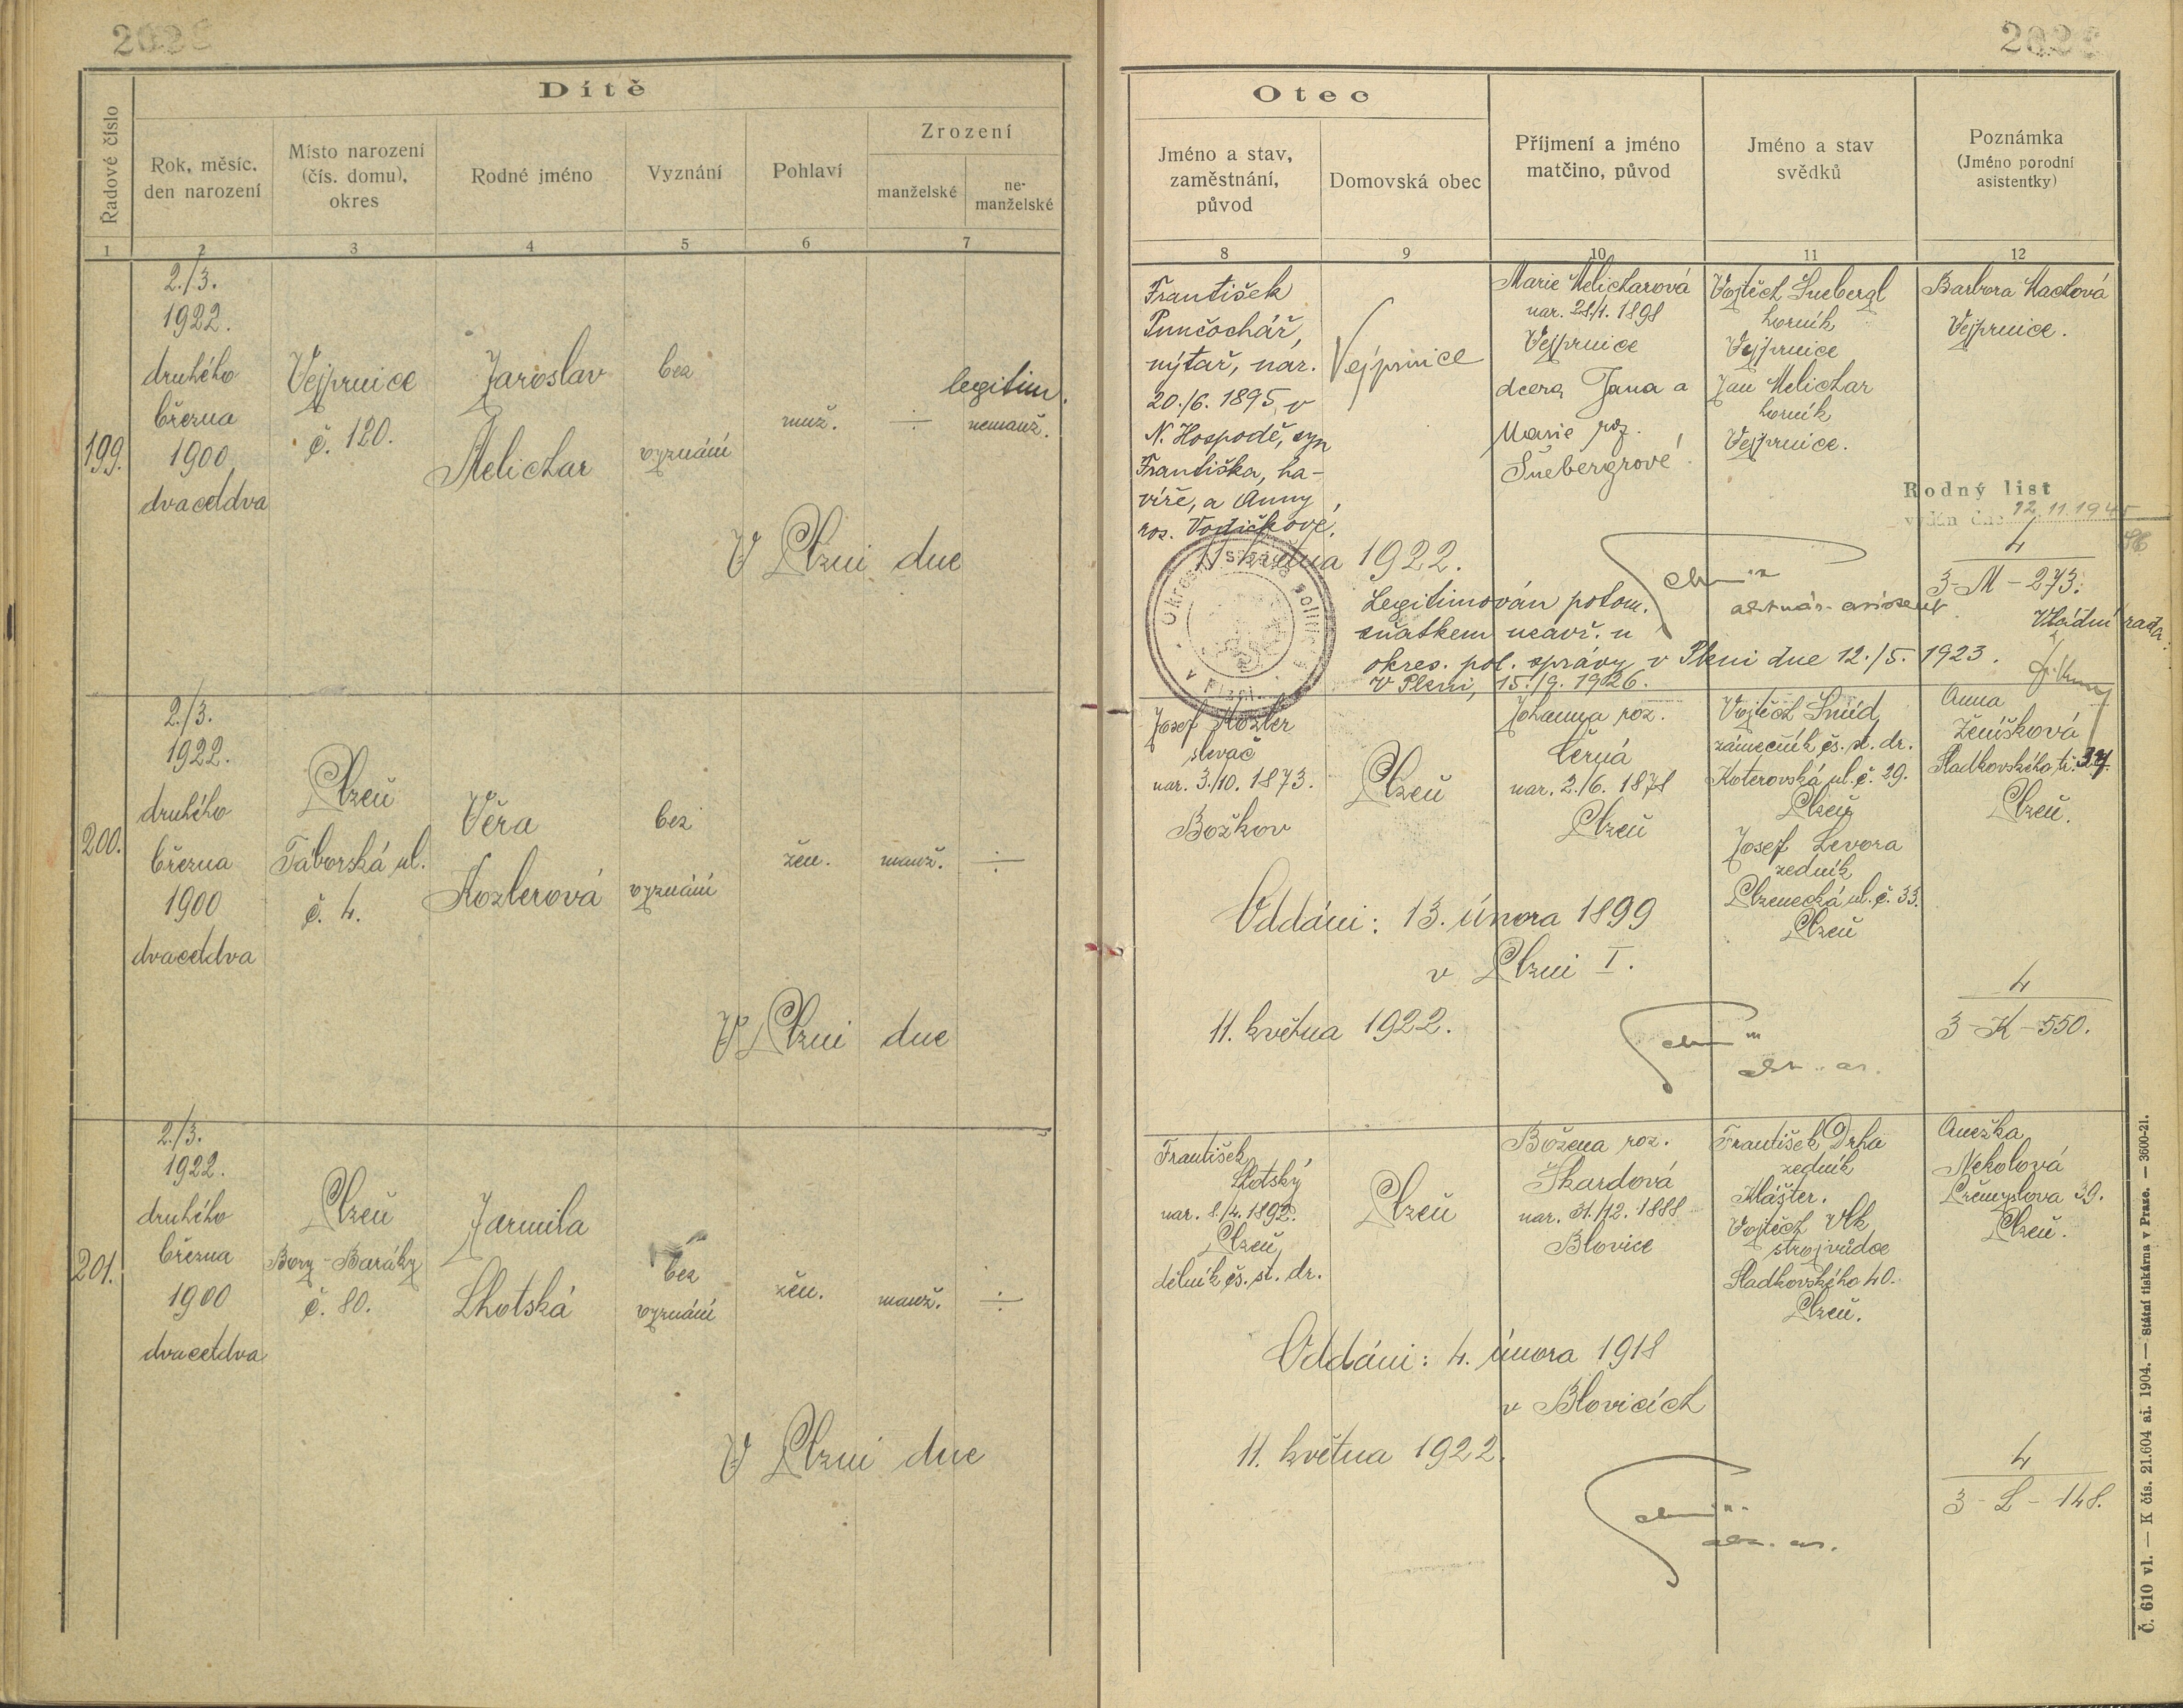 Dítě
Řadové číslo
Rok, měsíc,
den narození
Místo narození
(čís. domu),
okres
Rodné jméno
Vyznání
Pohlaví
Zrození
manželské
ne-
manželské
1
2
3
4
5
6
7
199.
2./3.
1922.
druhého
března
1900
dvacetdva
Vejprnice
č. 120.
Jaroslav
Melichar
bez
vyznání
muž.
÷
legitim.
nemanž.
V Plzni dne
200.
2./3.
1922.
druhého
března
1900
dvacetdva
Plzeň
Táborská ul.
č. 4.
Věra
Kozlerová
bez
vyznání
žen.
manž.
÷
V Plzni dne
201.
2./3.
1922.
druhého
března
1900
dvacetdva
Plzeň
Bory-Baráky
č. 80.
Jarmila
Lhotská
bez
vyznání
žen.
manž.
÷
V Plzni dne
Otec
Jméno a stav,
zaměstnání,
původ
Domovská obec
Příjmení a jméno
matčino, původ
Jméno a stav
svědků
Poznámka
(Jméno porodní
asistentky)
8
9
10
11
12
František
Punčochář,
nýtař, nar.
20./6. 1895 v
N. Hospodě, syn
Františka, ha-
víře, a Anny
roz. Vodičkové.
Vejprnice
Marie Melicharová
nar. 28/1. 1898
Vejprnice
dcera Jana a
Marie roz.
Šnebergrové
Vojtěch Šnebergl
horník
Vejprnice
Jan Melichar
horník
Vejprnice.
Barbora Maclová
Vejprnice.
Rodný list
vydán dne 12.11.1945
11 května 1922.
4
3-M-273.
Legitimován potom.
sňatkem uzavř. u
okres. pol. správy v Plzni dne 12./5. 1923.
V Plzni, 15./9. 1926.
Vládní rada
Josef Kozler
slevač
nar. 3./10. 1873.
Božkov
Plzeň
Johanna roz.
Černá
nar. 2./6. 1878
Plzeň
Vojtěch Šmíd
zámečník čs. st. dr.
Koterovská ul. č. 29.
Plzeň
Josef Levora
zedník
Plzenecká ul. č. 33.
Plzeň
Anna
Ženíšková
Sladkovského tř. 37.
Plzeň.
Oddáni: 13. února 1899
v Plzni I.
11. května 1922.
4
3-K-550.
František
Lhotský
nar. 8./4. 1892.
Plzeň
dělník čs. st. dr.
Plzeň
Božena roz.
Škardová
nar. 31./12. 1888
Blovice
František Drha
zedník
Klášter.
Vojtěch Vlk
strojvůdce
Sladkovského 40.
Plzeň.
Anežka
Nekolová
Přemyslova 39.
Plzeň.
Oddáni: 4. února 1918
v Blovicích
11. května 1922.
4
3-L-148.
Č. 610 vl. — K čís. 21.604 ai. 1904. — Státní tiskárna v Praze. — 3600-21.